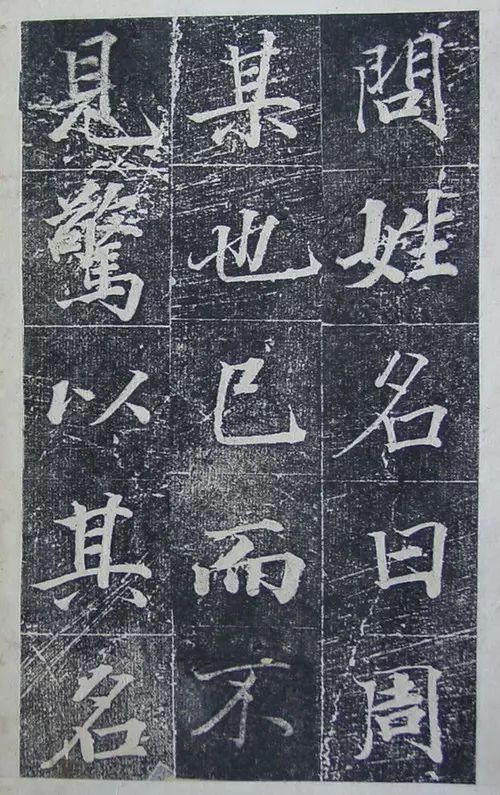 問姓名曰周
某也已而不
見驚以其名